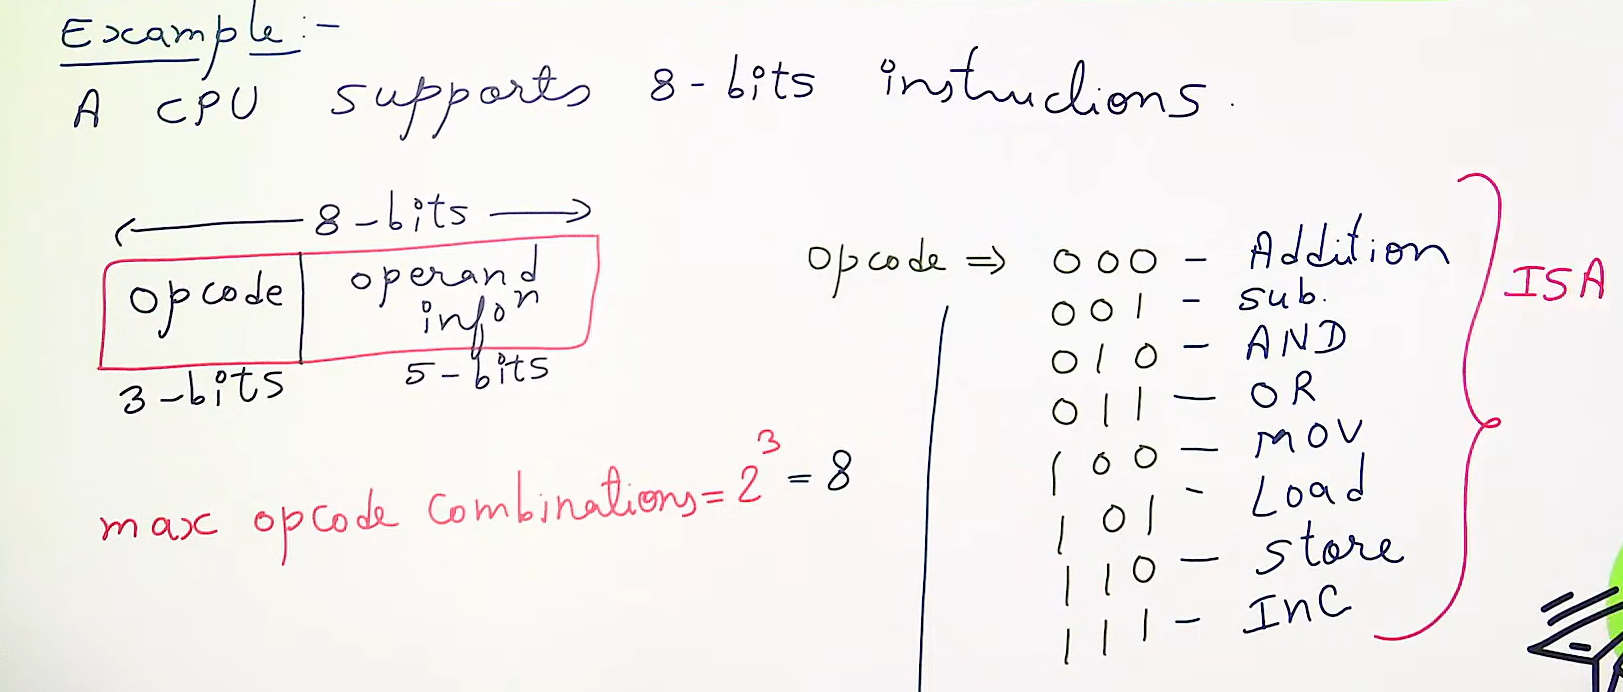 Example:-
A CPU supports 8-bits instructions.
8-bits
opcode
operand
infoⁿ
3-bits
5-bits
max opcode combinations = 2³ = 8
opcode ⇒ 000 - Addition
001 - sub.
010 - AND
011 - OR
100 - MOV
101 - Load
110 - store
111 - InC
ISA